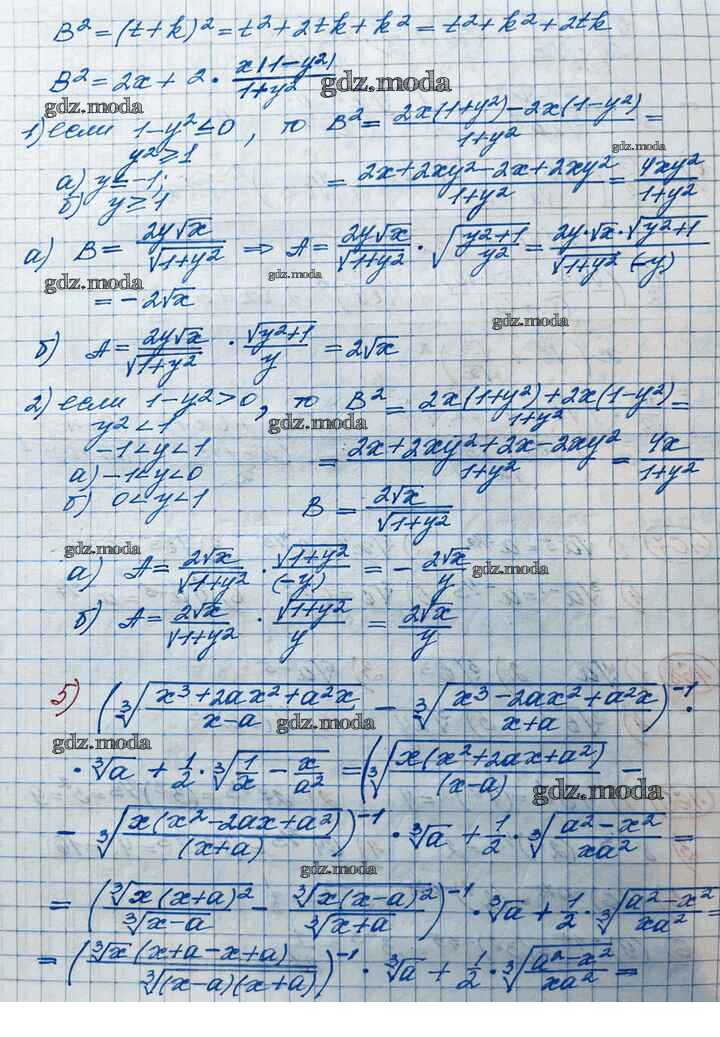 B² = (t+k)² = t² + 2tk + k² = t² + k² + 2tk
B² = 2x + 2 · x|1−y²|/1+y²
gdz.moda
gdz.moda
1) если 1−y² ≤ 0, то B² = 2x(1+y²)−2x(1−y²)/1+y² =
y² ≥ 1
gdz.moda
а) y ≤ −1; = 2x+2xy²−2x+2xy²/1+y² = 4xy²/1+y²
б) y ≥ 1
а) B = 2y√x/√1+y² ⇒ A = 2y√x/√1+y² · √(y²+1/y²) = 2y·√x·√y²+1/√1+y² (−y)
gdz.moda
gdz.moda
= −2√x
gdz.moda
б) A = 2y√x/√1+y² · √y²+1/y = 2√x
2) если 1−y² > 0, то B² = 2x(1+y²)+2x(1−y²)/1+y² =
gdz.moda
y² < 1
−1 < y < 1 = 2x+2xy²+2x−2xy²/1+y² = 4x/1+y²
а) −1 < y < 0
б) 0 < y < 1 B = 2√x/√1+y²
gdz.moda
а) A = 2√x/√1+y² · √1+y²/(−y) = − 2√x/y
gdz.moda
б) A = 2√x/√1+y² · √1+y²/y = 2√x/y
5) (∛(x³+2ax²+a²x/x−a) − ∛(x³−2ax²+a²x/x+a))⁻¹ ·
gdz.moda
gdz.moda
· ∛a + 1/2 · ∛(1/x − x/a²) = (∛(x(x²+2ax+a²)/(x−a)) −
gdz.moda
− ∛(x(x²−2ax+a²)/(x+a)))⁻¹ · ∛a + 1/2 · ∛(a²−x²/xa²) =
gdz.moda
= (∛x(x+a)²/∛x−a − ∛x(x−a)²/∛x+a)⁻¹ · ∛a + 1/2 · ∛(a²−x²/xa²) =
= (∛x(x+a−x+a)/∛(x−a)(x+a))⁻¹ · ∛a + 1/2 · ∛(a²−x²/xa²) =